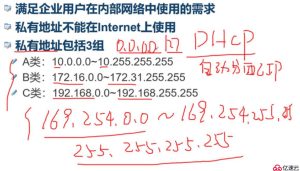 满足企业用户在内部网络中使用的需求
私有地址不能在Internet上使用
私有地址包括3组
0.0.0.0
DHCP
A类：10.0.0.0~10.255.255.255
B类：172.16.0.0~172.31.255.255
C类：192.168.0.0~192.168.255.255
自动分配IP
169.254.0.0 ~ 169.254.255.255
255.255.255.255
亿速云